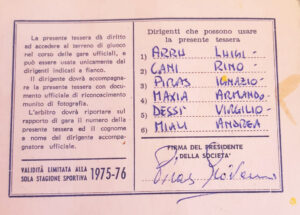 La presente tessera dà diritto
ad accedere al terreno di giuoco
nel corso delle gare ufficiali, e
può essere usata unicamente dai
dirigenti indicati a fianco.
Il dirigente dovrà accompagna-
re la presente tessera con docu-
mento ufficiale di riconoscimento
munito di fotografia.
L'arbitro dovrà riportare sul
rapporto di gara il numero della
presente tessera ed il cognome
e nome del dirigente accompa-
gnatore ufficiale.
VALIDITÀ LIMITATA ALLA
SOLA STAGIONE SPORTIVA 1975-76
Dirigenti che possono usare
la presente tessera
1) ARRU LUIGI
2) CANI RINO
3) PIRAS IGNAZIO
4) MAXIA ARMANDO
5) DESSÌ VIRGILIO
6) MIALI ANDREA
FIRMA DEL PRESIDENTE
DELLA SOCIETÀ
Piras